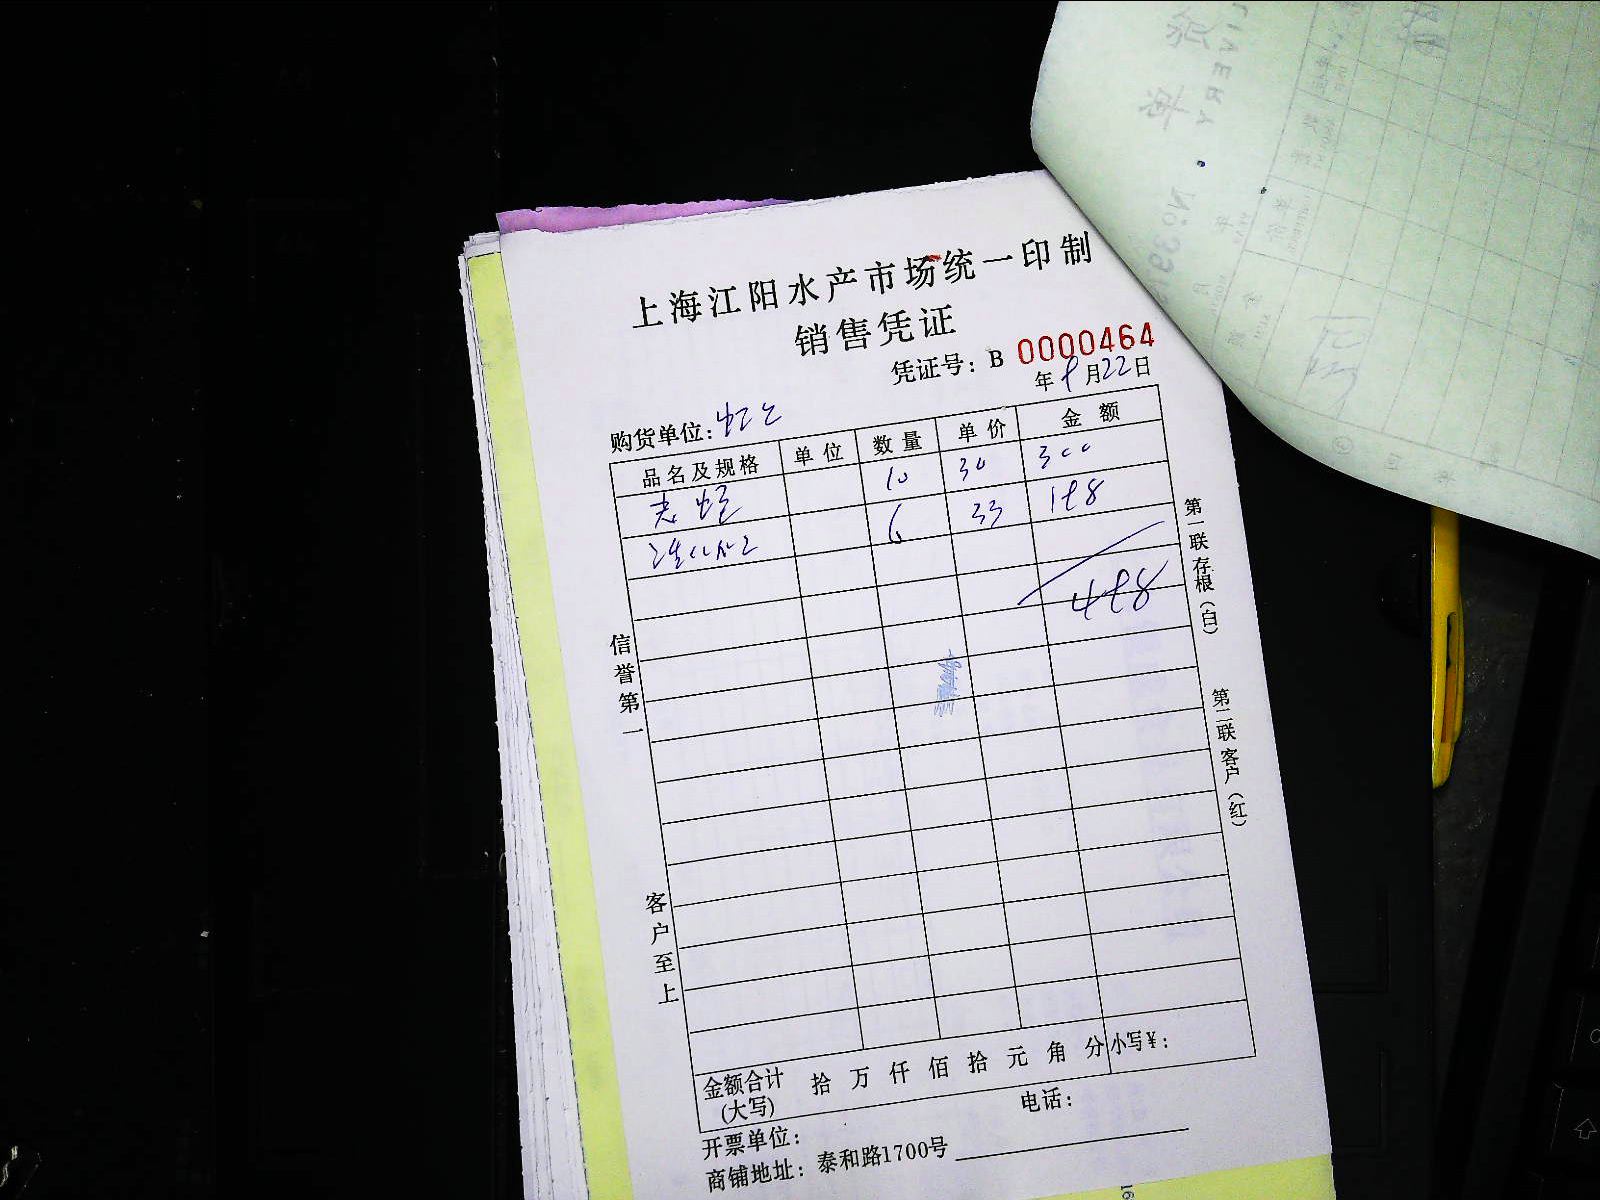 上海江阳水产市场统一印制
销售凭证
凭证号：B 0000464
年9月22日
购货单位：
品名及规格 单位 数量 单价 金额
10 30 300
6 33 198
498
信誉第一
客户至上
第一联存根（白）
第二联客户（红）
金额合计(大写) 拾 万 仟 佰 拾 元 角 分 小写¥：
开票单位： 电话：
商铺地址：泰和路1700号